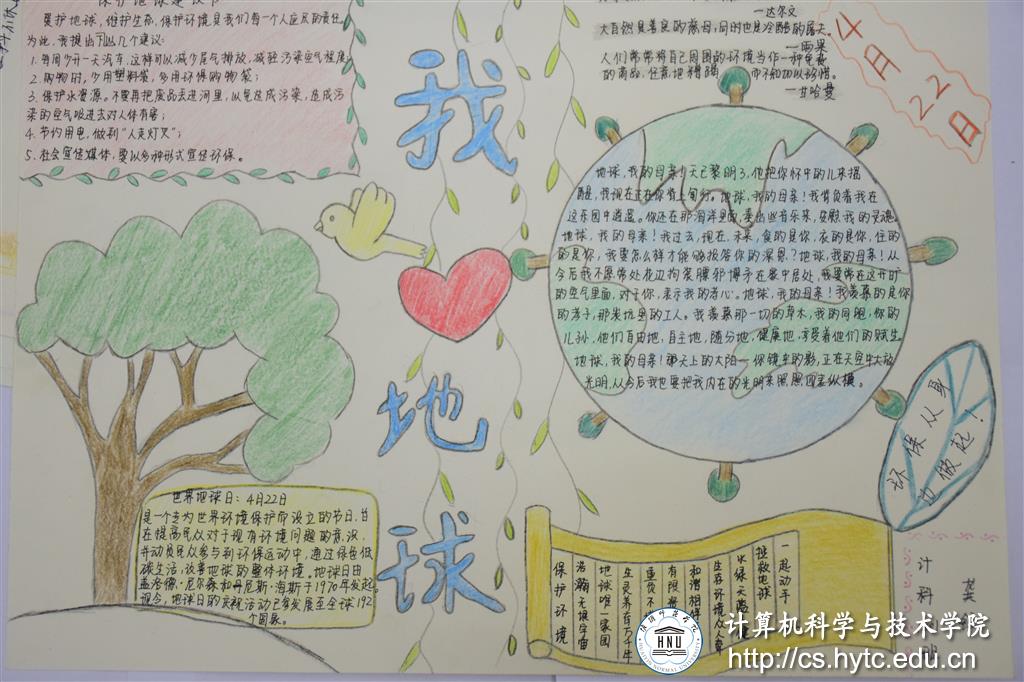 保护地球建议书
要护地球，维护生态，保护环境是我们每一个人应尽的责任。
为此，我提出下以几个建议：
1. 每周少开一天汽车，这样可以减少尾气排放，减轻污染空气程度；
2. 购物时，少用塑料袋，多用环保购物袋；
3. 保护水资源。不要再把废品丢进河里，以免造成污染，造成污
染的空气吸进去对人体有害；
4. 节约用电，做到"人走灯灭"；
5. 社会宣传媒体，要以多种形式宣传环保。
—达尔文
大自然是善良的慈母，同时也是冷酷的屠夫。
—雨果
人们常常将自己周围的环境当作一种免费
的商品，任意地糟蹋 而不知加以珍惜。
—甘哈曼
4月22日
我
地
球
地球，我的母亲！天已黎明了，他把你怀中的儿来摇
醒，我现在正在你背上匍行。地球，我的母亲！我背负着我在
这乐园中逍遥。你还在那海洋里面，奏出些音乐来，安慰我的灵魂。
地球，我的母亲！我过去，现在，未来，食的是你，衣的是你，住的
的是你，我要怎么样才能够报答你的深恩？地球，我的母亲！从
今后我不愿常处
的空气里面，对于你，表示我的孝心。地球，我的母亲！我羡慕的是你
的孝子，那炭坑里的工人。我羡慕那一切的草木，我的同胞，你的
儿孙，他们自由地，自主地，随分地，健康地，享受着他们的赋生。
地球，我的母亲！那天上的太阳—你镜中的影，正在天空中大放
光明，从今后我也要把我内在的光明来照照四表纵横。
环保从身
边做起！
世界地球日：4月22日
是一个专为世界环境保护而设立的节日，旨
在提高民众对于现有环境问题的意识，
并动员民众参与到环保运动中，通过绿色低
碳生活，改善地球的整体环境。地球日由
盖洛德·尼尔森和丹尼斯·海斯于1970年发起。
现今，地球日的庆祝活动已发展至全球192
个国家。
一起动手
拯救地球
生存环境人人爱
和谐相伴
有限
生灵养育万千年
地球唯一家园
浩瀚无垠宇宙
保护环境
计科
龚
HNU
计算机科学与技术学院
http://cs.hytc.edu.cn